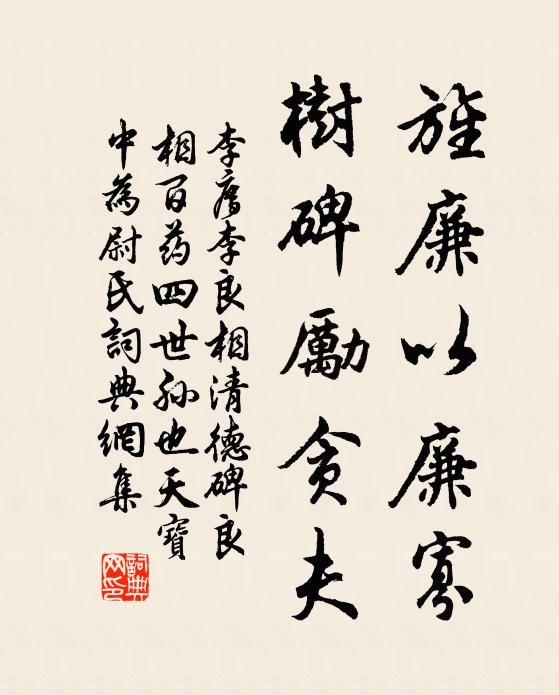 旌廉以廉寡
樹碑勵貪夫
李廥李良相清德碑良
相百药四世孙也天寶
中為尉氏詞典網集
詞典网印